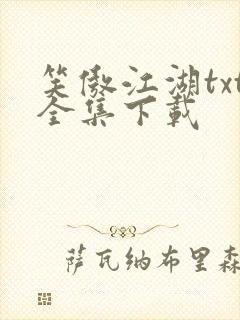 笑傲江湖txt
全集下载
萨瓦纳布里森